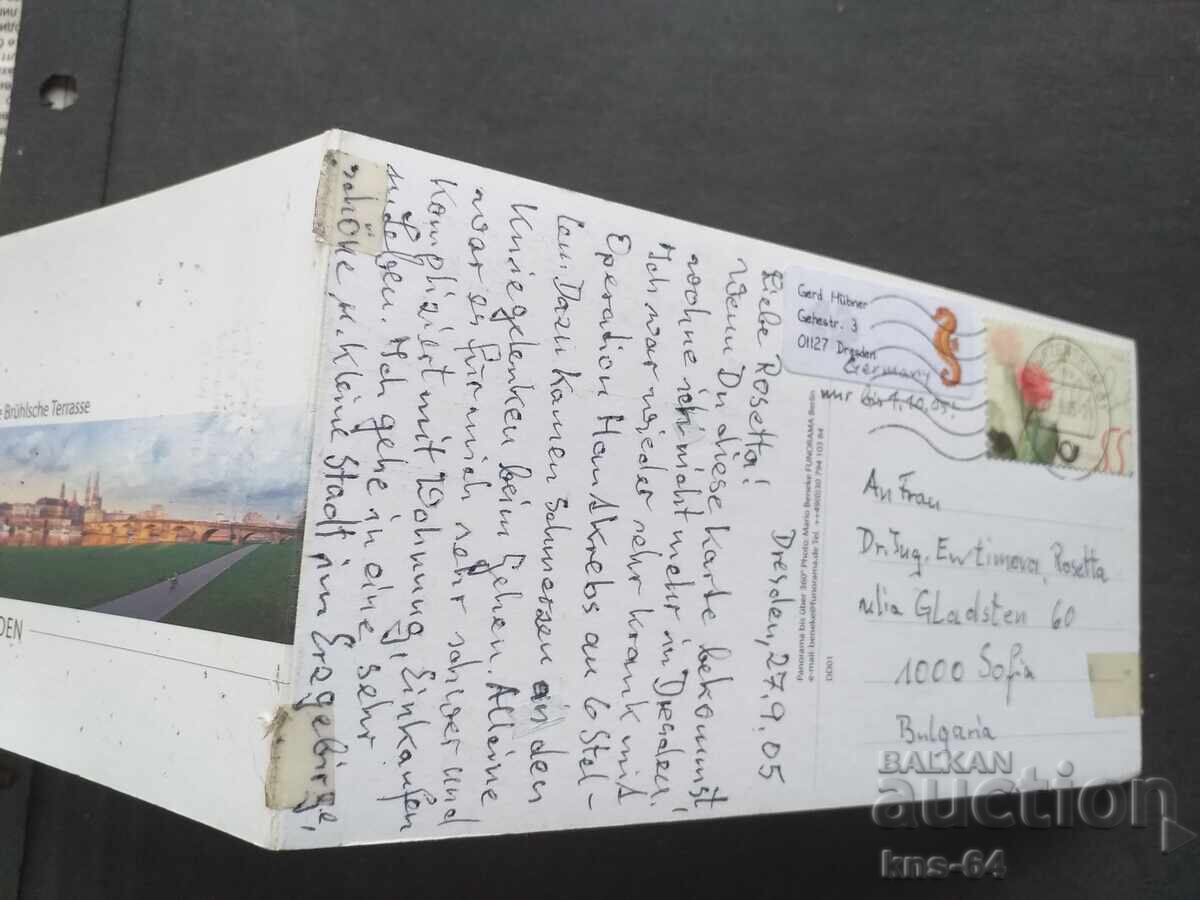 Dresden, 27.9.05
Liebe Rosetta!
Wenn Du diese Karte bekommst
wohne ich nicht mehr in Dresden.
Ich war wieder sehr krank mit
Operation Hautkrebs an 6 Stel-
len. Dazu kamen Schmerzen in den
Kniegelenken beim Gehen. Alleine
war es für mich sehr schwer und
kompliziert mit Wohnung, Einkaufen
Ich gehe in eine sehr
schöne, kleine Stadt im Erzgebirge,
Gerd Hübner
Gehestr. 3
01127 Dresden
Germany
nur bis 1.10.05!
55
Panorama bis über 360° Photo: Mario Beneke FUNORAMA Berlin
e-mail: beneke@funorama.de Tel ++49(0)30 794 103 84
DD01
An Frau
Dr. Ing. Entimova, Rosetta
ulia Gladsten 60
1000 Sofia
Bulgaria
e Brühlsche Terrasse
DEN
BALKAN
auction
kns-64